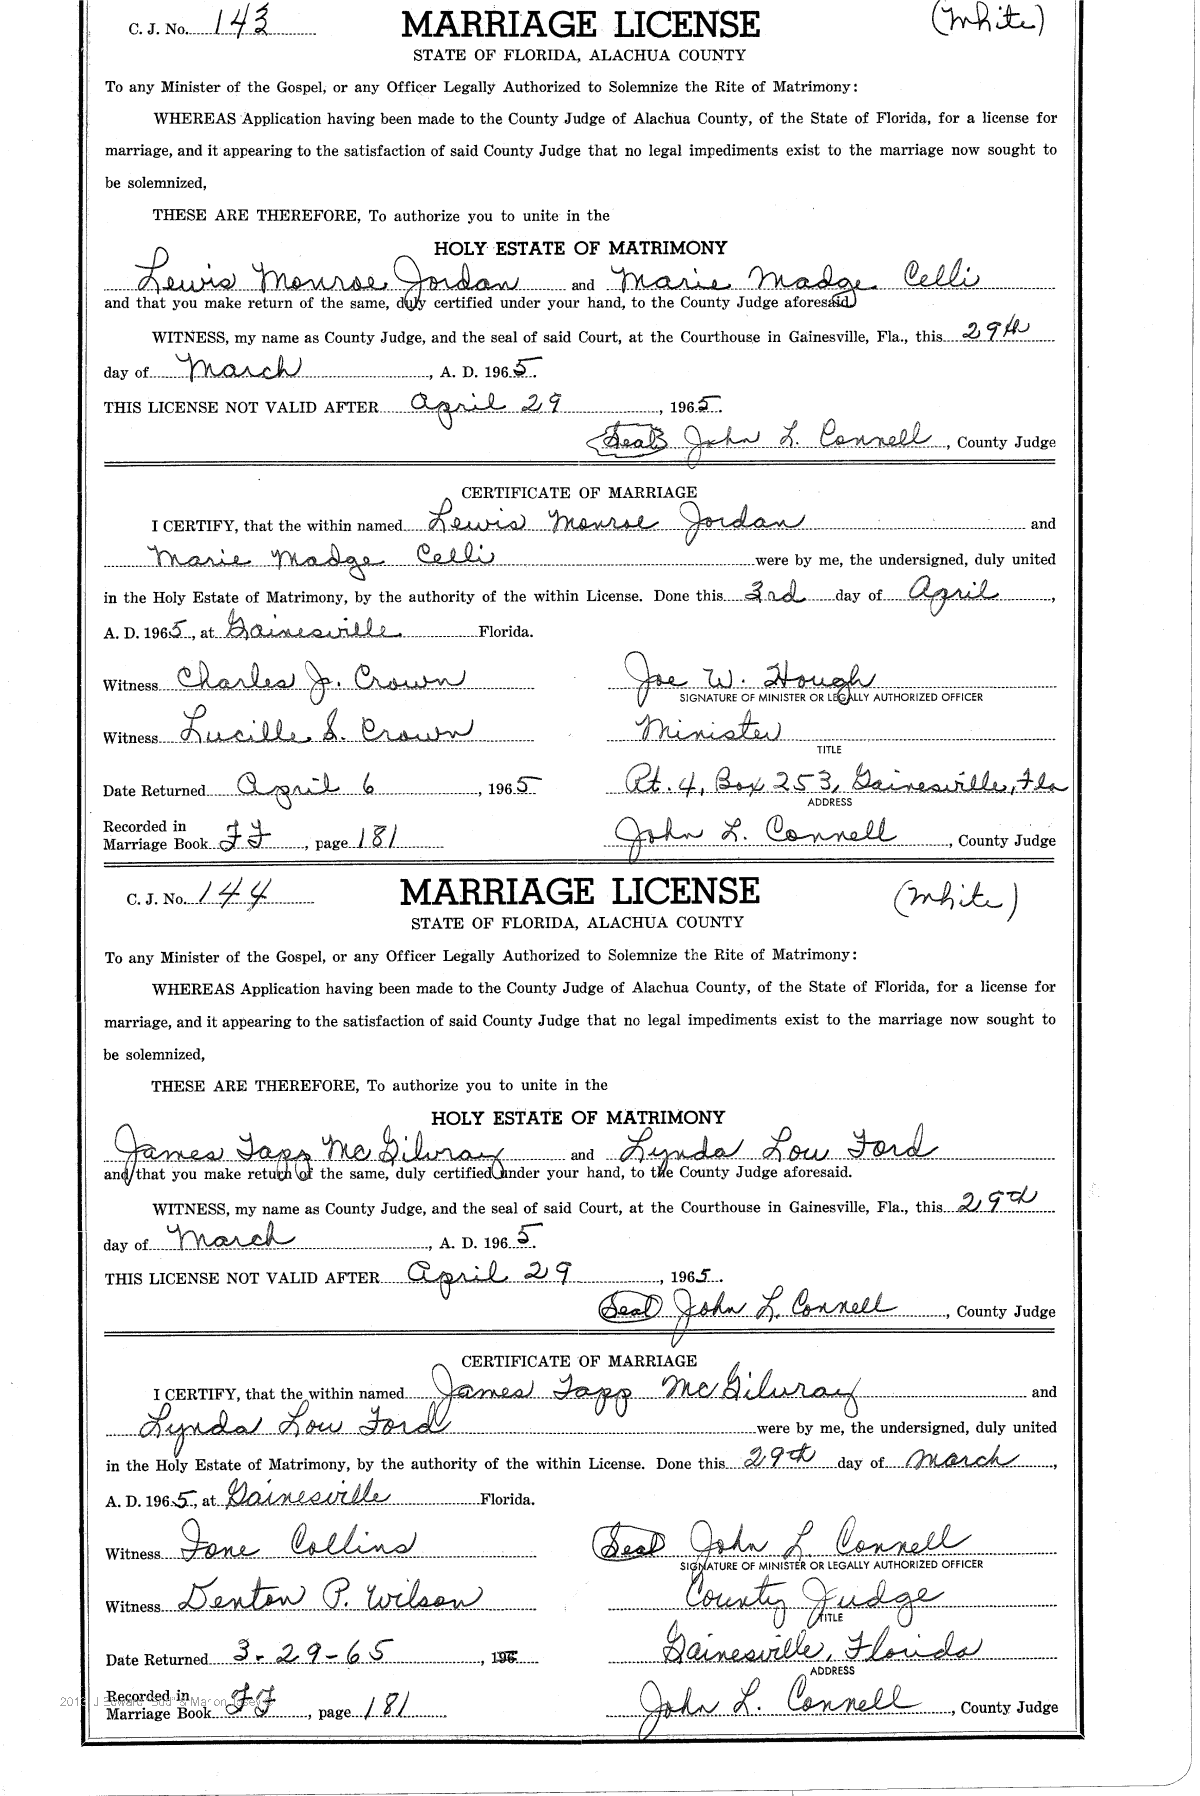 C. J. No. 143 MARRIAGE LICENSE (White)
STATE OF FLORIDA, ALACHUA COUNTY
To any Minister of the Gospel, or any Officer Legally Authorized to Solemnize the Rite of Matrimony:
WHEREAS Application having been made to the County Judge of Alachua County, of the State of Florida, for a license for
marriage, and it appearing to the satisfaction of said County Judge that no legal impediments exist to the marriage now sought to
be solemnized,
THESE ARE THEREFORE, To authorize you to unite in the
HOLY ESTATE OF MATRIMONY
Lewis Monroe Jordan and Marie Madge Celli
and that you make return of the same, duly certified under your hand, to the County Judge aforesaid.
WITNESS, my name as County Judge, and the seal of said Court, at the Courthouse in Gainesville, Fla., this 29th
day of March, A. D. 1965.
THIS LICENSE NOT VALID AFTER April 29, 1965.
(Seal) John L. Connell, County Judge
CERTIFICATE OF MARRIAGE
I CERTIFY, that the within named Lewis Monroe Jordan and
Marie Madge Celli were by me, the undersigned, duly united
in the Holy Estate of Matrimony, by the authority of the within License. Done this 3rd day of April,
A. D. 1965, at Gainesville Florida.
Witness Charles J. Crown Joe W. Hough
SIGNATURE OF MINISTER OR LEGALLY AUTHORIZED OFFICER
Witness Lucille S. Crown Minister
TITLE
Date Returned April 6, 1965 Rt. 4, Box 253, Gainesville, Fla
ADDRESS
Recorded in
Marriage Book FF, page 181 John L. Connell, County Judge
C. J. No. 144 MARRIAGE LICENSE (White)
STATE OF FLORIDA, ALACHUA COUNTY
To any Minister of the Gospel, or any Officer Legally Authorized to Solemnize the Rite of Matrimony:
WHEREAS Application having been made to the County Judge of Alachua County, of the State of Florida, for a license for
marriage, and it appearing to the satisfaction of said County Judge that no legal impediments exist to the marriage now sought to
be solemnized,
THESE ARE THEREFORE, To authorize you to unite in the
HOLY ESTATE OF MATRIMONY
James Tapp McGilvray and Lynda Lou Ford
and that you make return of the same, duly certified under your hand, to the County Judge aforesaid.
WITNESS, my name as County Judge, and the seal of said Court, at the Courthouse in Gainesville, Fla., this 29th
day of March, A. D. 1965.
THIS LICENSE NOT VALID AFTER April 29, 1965.
(Seal) John L. Connell, County Judge
CERTIFICATE OF MARRIAGE
I CERTIFY, that the within named James Tapp McGilvray and
Lynda Lou Ford were by me, the undersigned, duly united
in the Holy Estate of Matrimony, by the authority of the within License. Done this 29th day of March,
A. D. 1965, at Gainesville Florida.
Witness Ione Collins (Seal) John L. Connell
SIGNATURE OF MINISTER OR LEGALLY AUTHORIZED OFFICER
Witness Denton P. Wilson County Judge
TITLE
Date Returned 3-29-65, 196 Gainesville, Florida
ADDRESS
Recorded in
Marriage Book FF, page 181 John L. Connell, County Judge